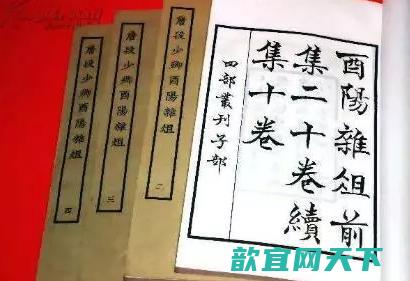 酉陽雜俎前
集二十卷續
集十卷
四部叢刊子部
唐段少卿酉陽雜俎
二
唐段少卿酉陽雜俎
三
唐段少卿酉陽雜俎
四
歆宜网天下